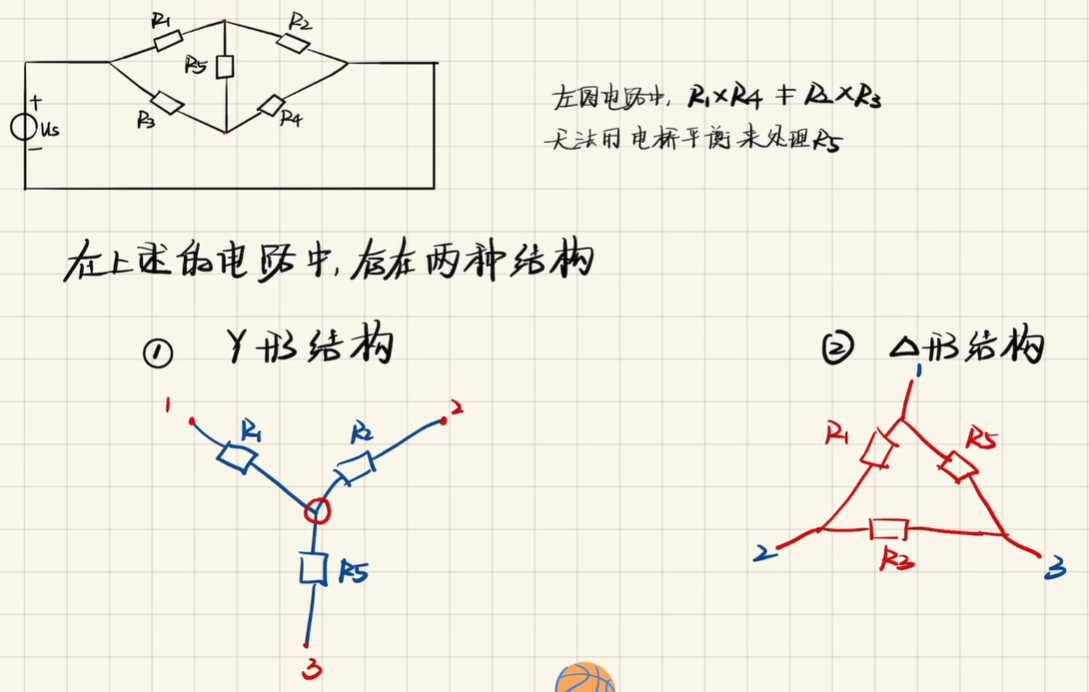 R1
R2
R5
R3
R4
+
Us
-
左图电路中, R1×R4 ≠ R2×R3
无法用电桥平衡来处理R5
在上述的电路中,存在两种结构
① Y形结构
② △形结构
1
R1
R2
2
R5
3
1
R1
R5
2
R3
3